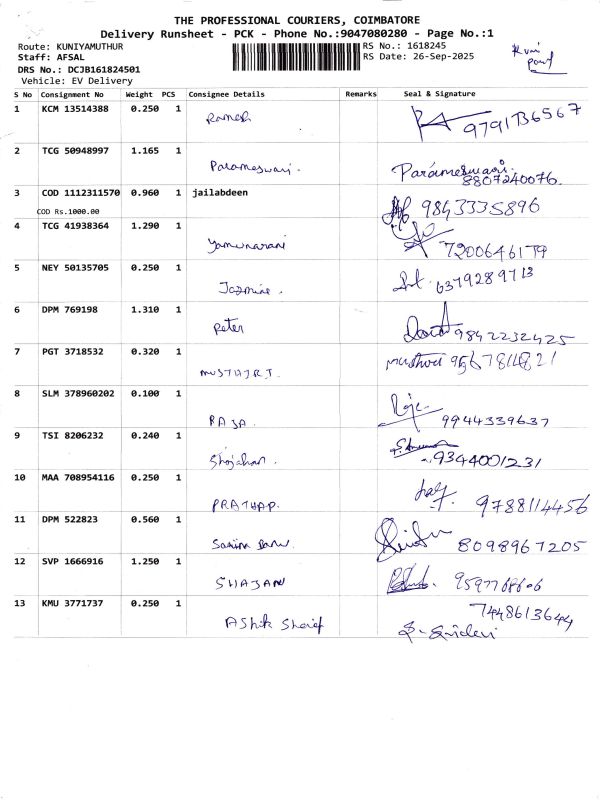 THE PROFESSIONAL COURIERS, COIMBATORE
Delivery Runsheet - PCK - Phone No.:9047080280 - Page No.:1
Route: KUNIYAMUTHUR
RS No.: 1618245
Staff: AFSAL
RS Date: 26-Sep-2025
DRS No.: DCJB161824501
Vehicle: EV Delivery
S No Consignment No Weight PCS Consignee Details Remarks Seal & Signature
1 KCM 13514388 0.250 1 Ramesh
2 TCG 50948997 1.165 1 Parameswari. Parameswari. 8807240076.
3 COD 1112311570 0.960 1 jailabdeen 9843335896
COD Rs.1000.00
4 TCG 41938364 1.290 1 Yamunarani 7200646179
5 NEY 50135705 0.250 1 Jazmine. 6379289713
6 DPM 769198 1.310 1 Peter 9842232425
7 PGT 3718532 0.320 1
8 SLM 378960202 0.100 1 RAJA. 9944339637
9 TSI 8206232 0.240 1 Shajahan. 9344001231
10 MAA 708954116 0.250 1 PRATHAP. 9788114456
11 DPM 522823 0.560 1 8098967205
12 SVP 1666916 1.250 1 SHAJAN
13 KMU 3771737 0.250 1 Ashik Sherif 7448613644
S. Sridevi